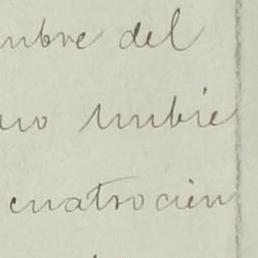 mbre del
no nubie
cuatrocien